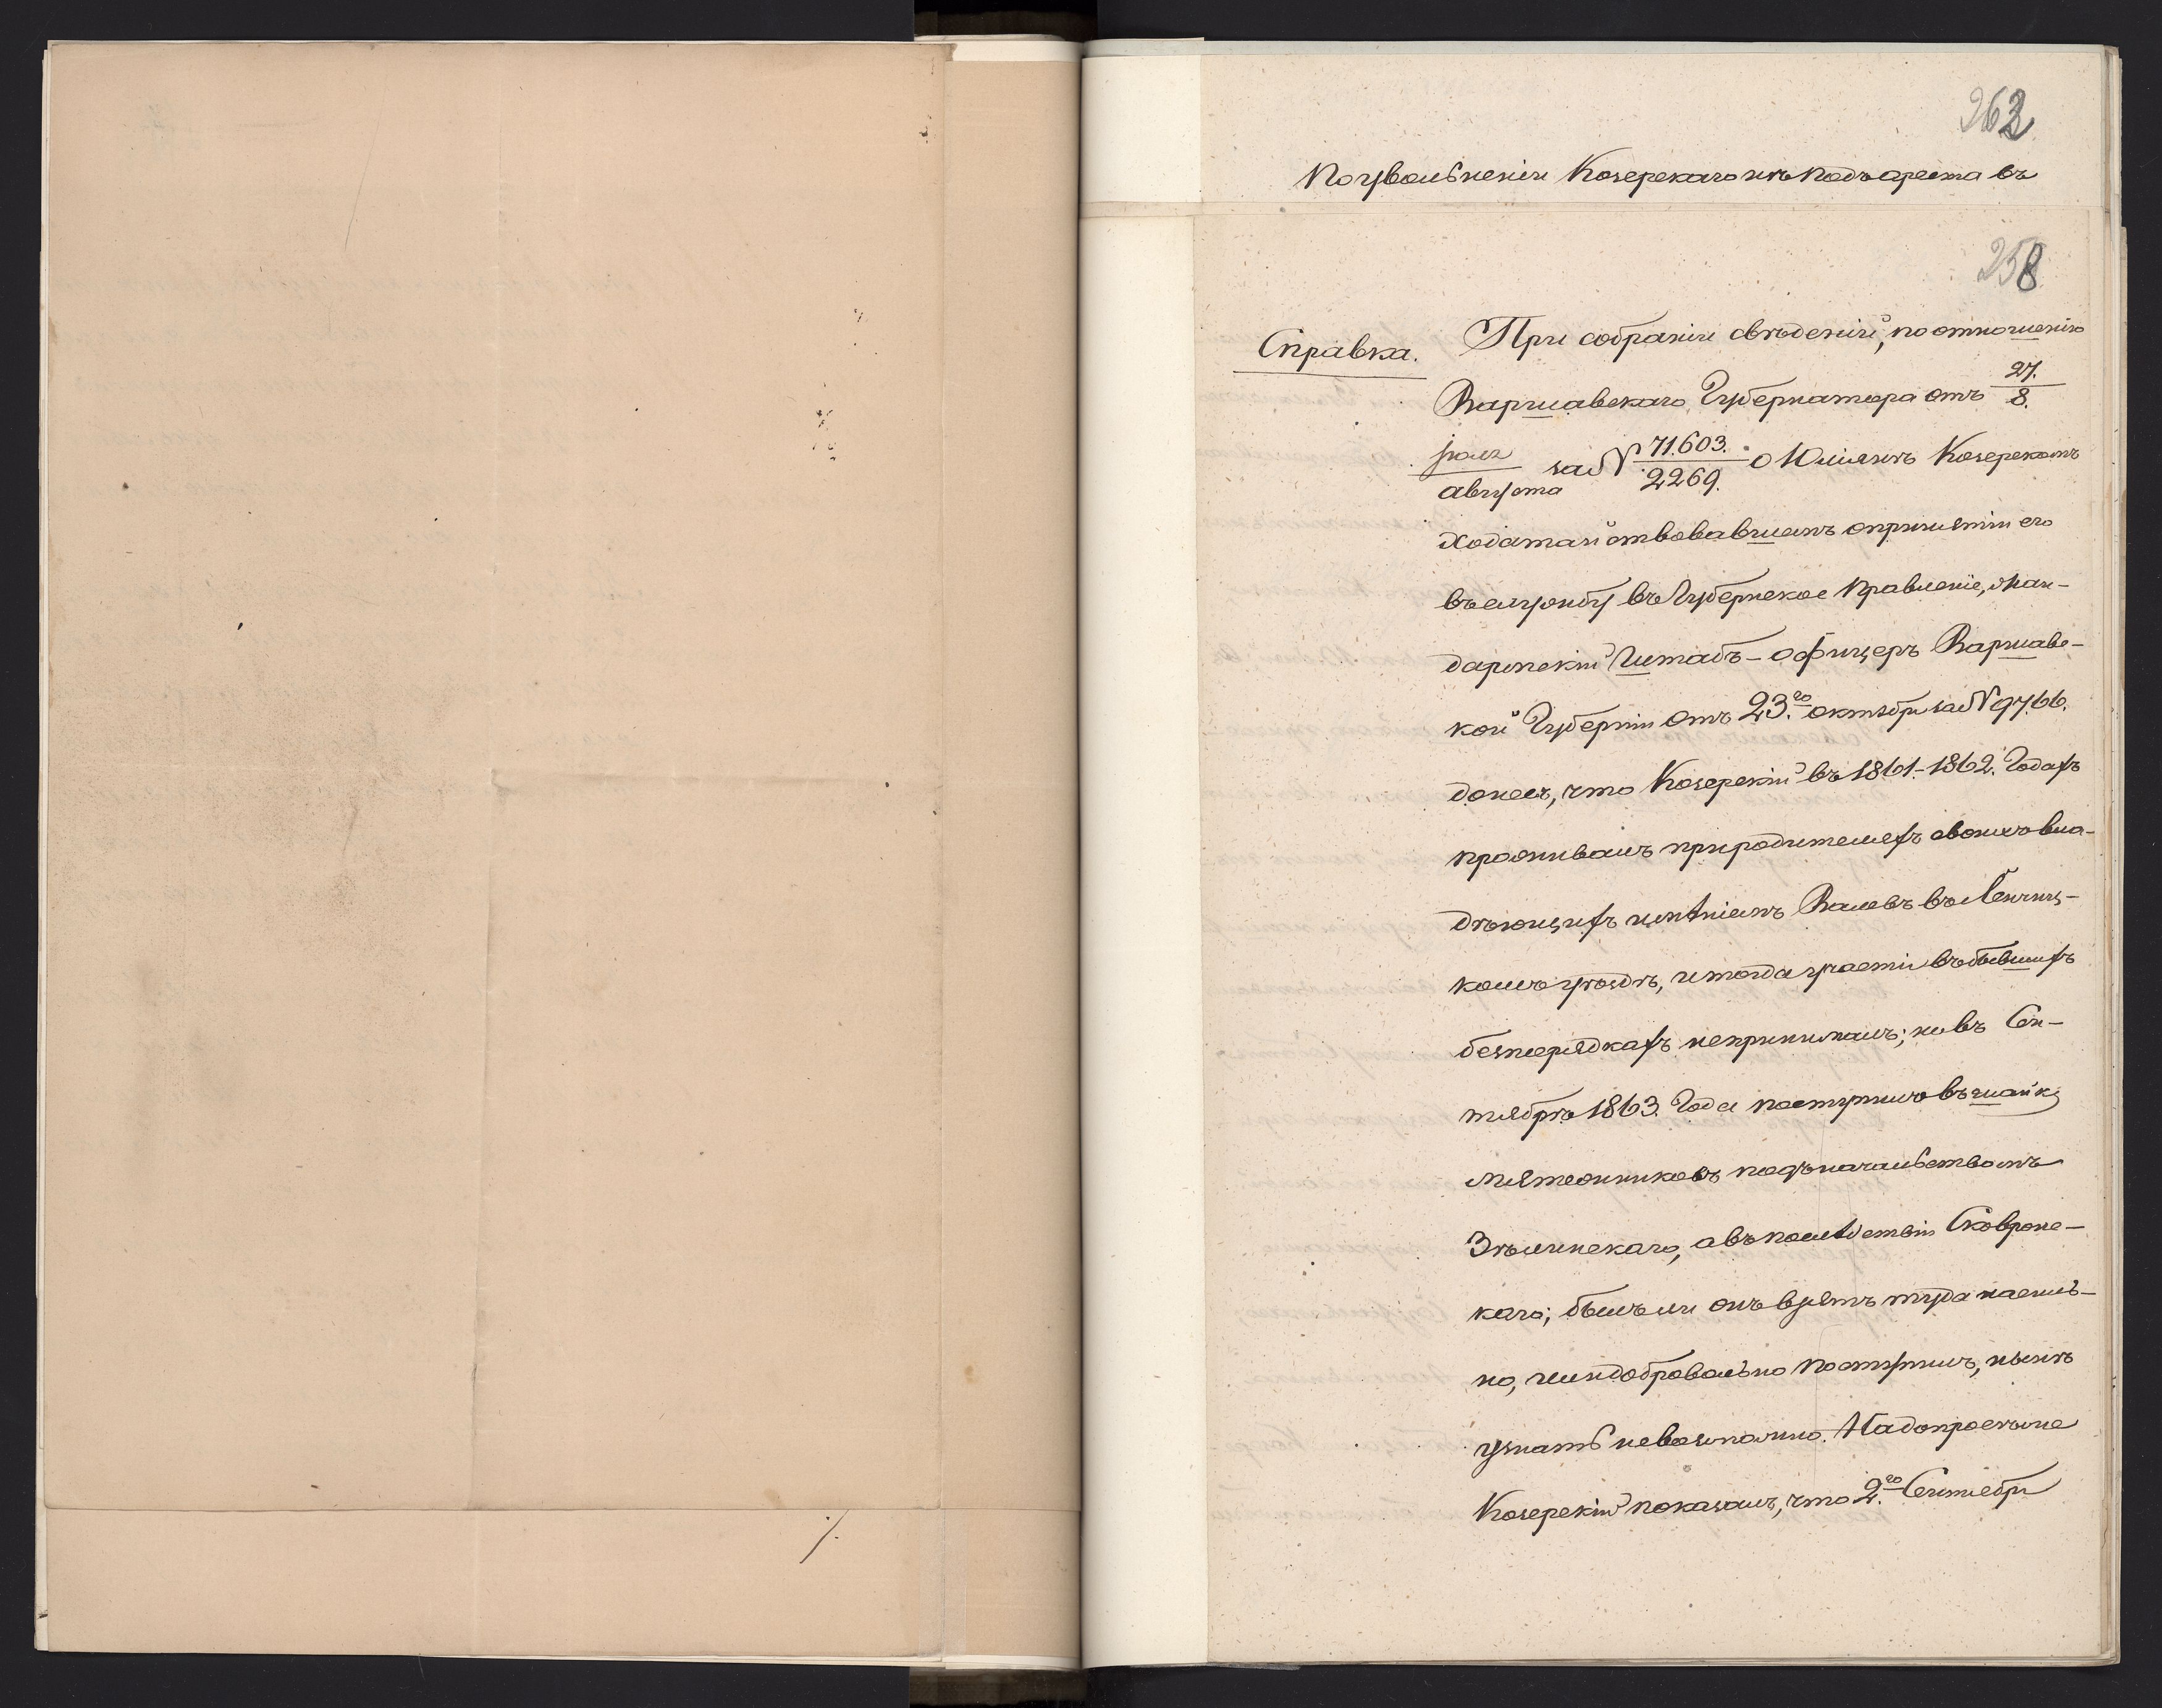 262
По увольненіи Козерскаго изъ подъ ареста въ
258
Справка.
При собраніи свѣденій, по отношенію
Варшавскаго Губернатора отъ 27./8.
іюля/августа за № 71.603./2269. о Юліанѣ Козерскомъ
ходатайствовавшемъ о принятіи его
въ службу въ Губернское Правленіе, Жан-
дармскій Штабъ-офицеръ Варшавс-
кой Губерніи отъ 23.го октября за № 9766.
донесъ, что Козерскій въ 1861-1862. годахъ
проживалъ при родителяхъ своихъ вла-
дѣющихъ имѣніемъ Валевъ въ Ленчиц-
комъ уѣздѣ, и тогда участія въ бывшихъ
безпорядкахъ не принималъ; но въ Сен-
тябрѣ 1863. года поступилъ въ шайку
мятежниковъ подъ начальствомъ
Зѣлинскаго, а въ послѣдствіи Скворонс-
каго; былъ ли онъ взятъ туда насиль-
но, или добровольно поступилъ, нынѣ
узнать невозможно. На допросѣ же
Козерскій показалъ, что 2.го Сентября
./.